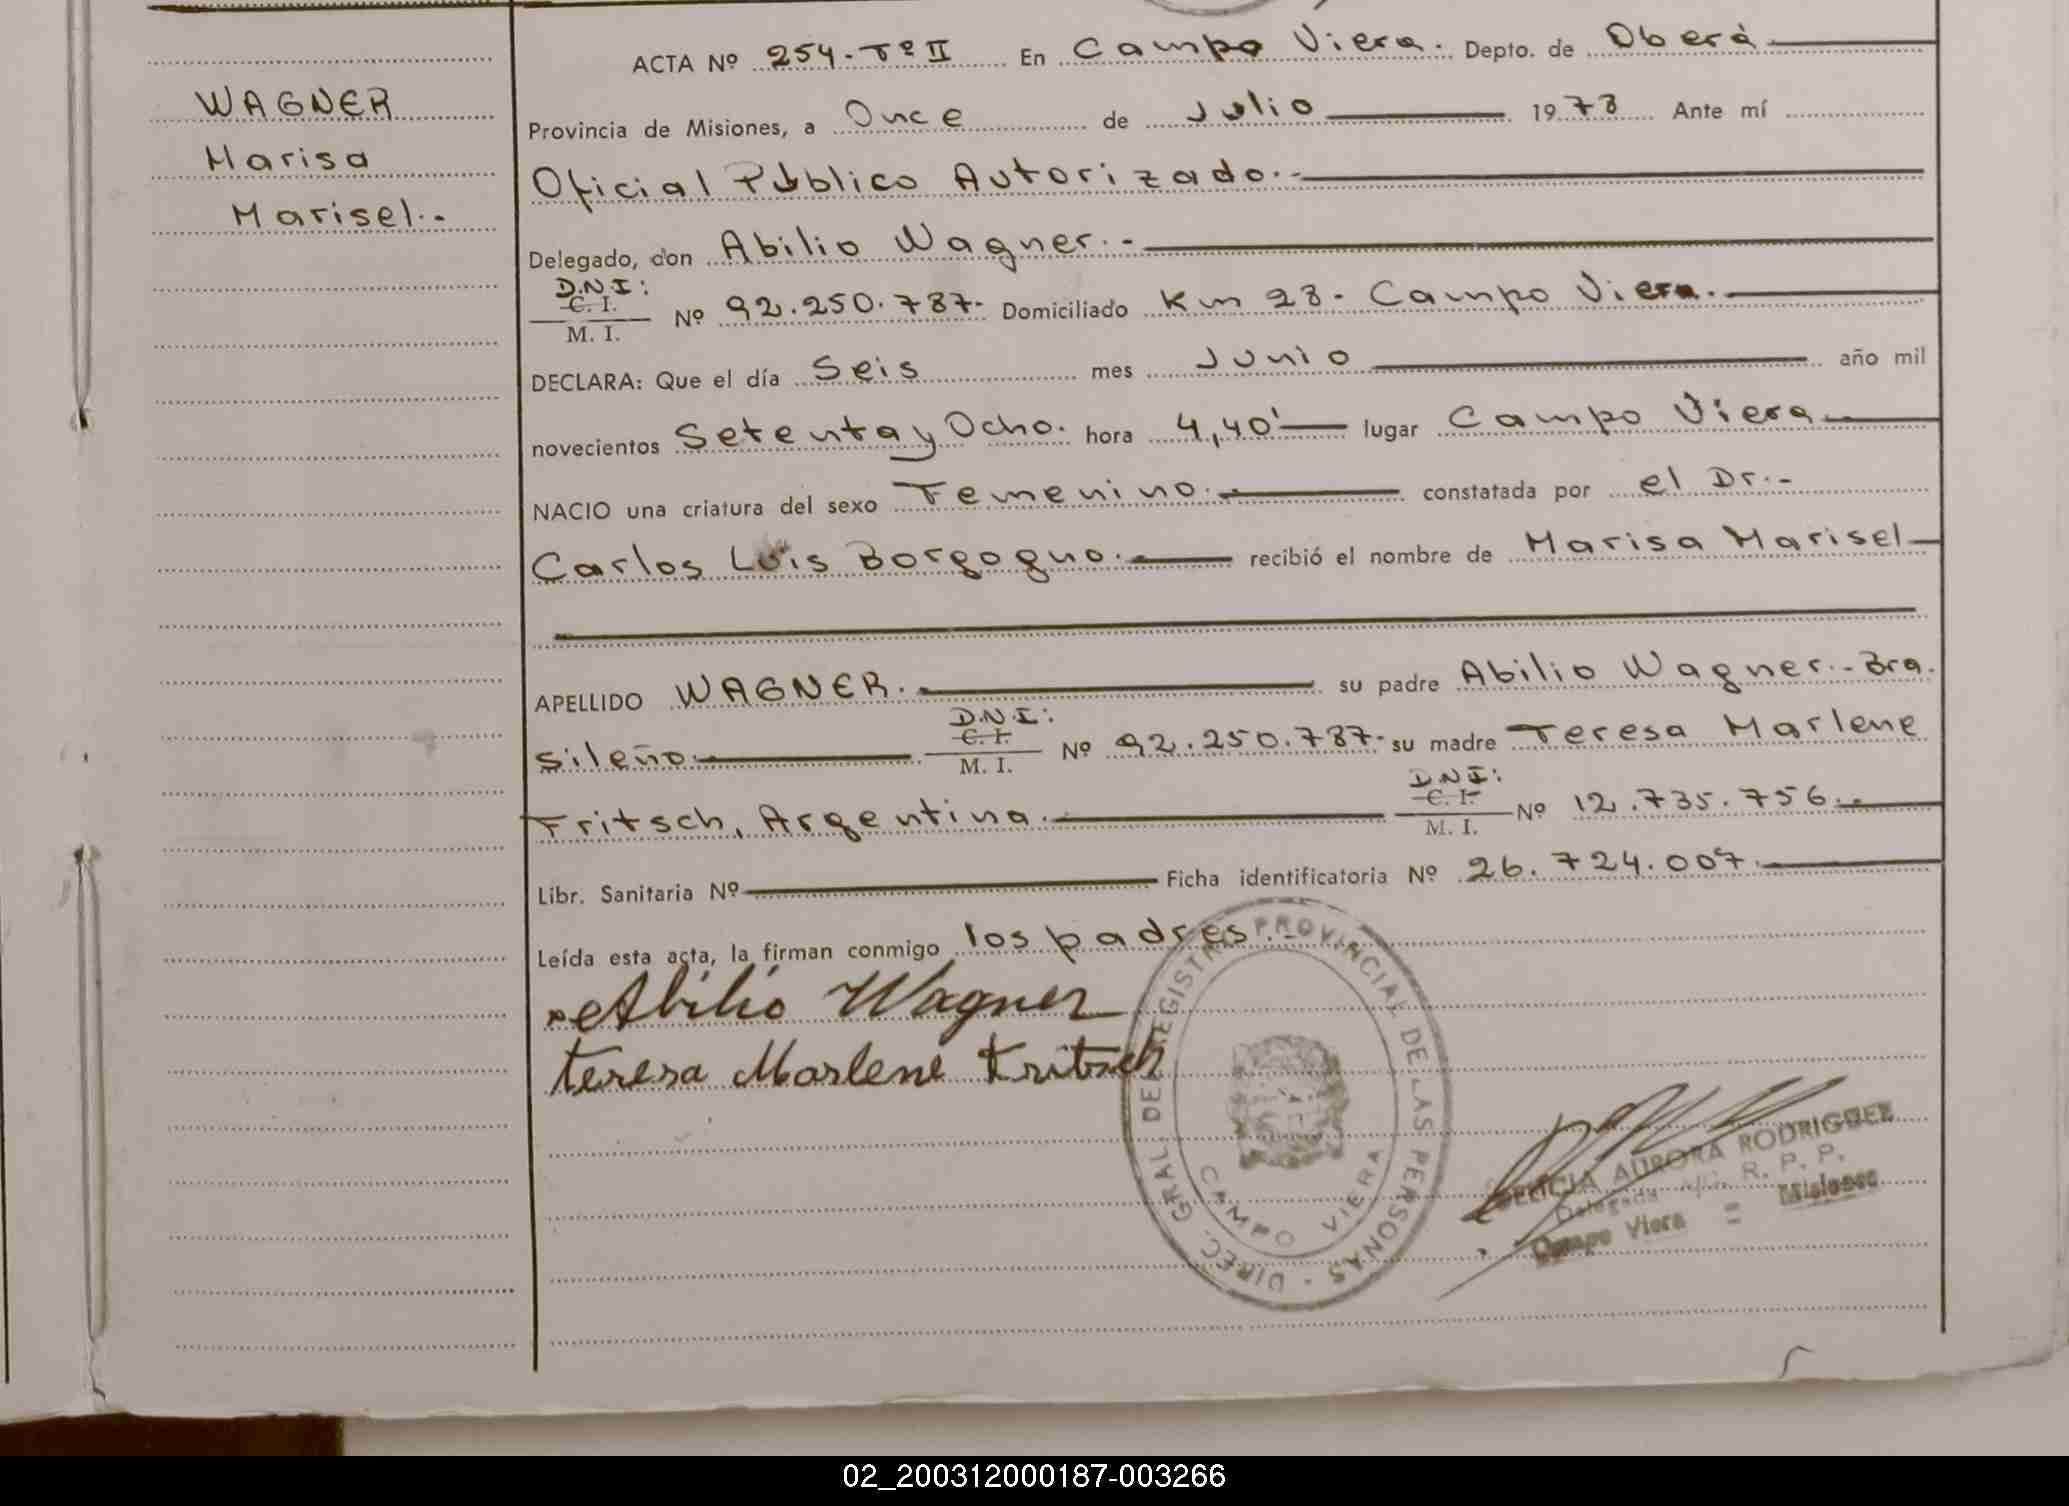 WAGNER
Marisa
Marisel.-
ACTA Nº 254-Tº II En Campo Viera. Depto. de Oberá
Provincia de Misiones, a Once de Julio 1978 Ante mí
Oficial Público Autorizado.-
Delegado, don Abilio Wagner.-
D.N.I:
C. I.
M. I.
Nº 92.250.787- Domiciliado Km 28- Campo Viera.
DECLARA: Que el día Seis mes Junio año mil
novecientos Setenta y Ocho. hora 4,40' lugar Campo Viera
NACIO una criatura del sexo Femenino.- constatada por el Dr.-
Carlos Luis Borgogno. recibió el nombre de Marisa Marisel
APELLIDO WAGNER. su padre Abilio Wagner.-Bra.
sileño D.N.I: C. I. M. I. Nº 92.250.787- su madre Teresa Marlene
Fritsch, Argentina. D.N.I: C. I. M. I. Nº 12.735.756.-
Libr. Sanitaria Nº Ficha identificatoria Nº 26.724.007.
Leída esta acta, la firman conmigo los padres.-
Abilio Wagner
teresa Marlene Fritsch
DIREC. GRAL DEL REGISTRO PROVINCIAL DE LAS PERSONAS -
CAMPO VIERA
AURORA RODRIGUEZ
Delegada R. P. P.
Campo Viera = Misiones
02_200312000187-003266